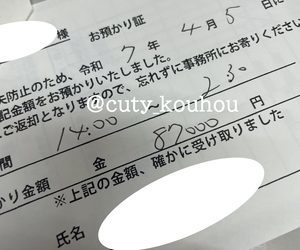 様 お預かり証
失防止のため、令和 7 年 4 月 5 日に
記金額をお預かりいたしました。
ご返却となりましたので、忘れずに事務所にお寄りください
@cuty_kouhou
間 14:00 230
かり金額 金 87000 円
※上記の金額、確かに受け取りました
氏名